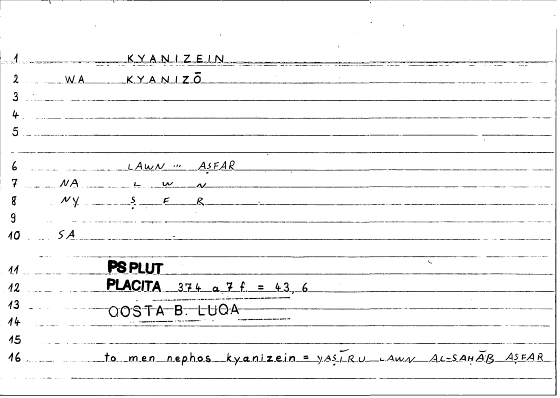 1 KYANIZEIN
2 WA KYANIZŌ
3
4
5
6 LAWN ... AṢFAR
7 NA L W N
8 NY Ṣ F R
9
10 SA
11 PS PLUT
12 PLACITA 374 a 7 f = 43, 6
13 QOSTA B. LUQA
14
15
16 to men nephos kyanizein = YAṢĪRU LAWN AL-SAḤĀB AṢFAR